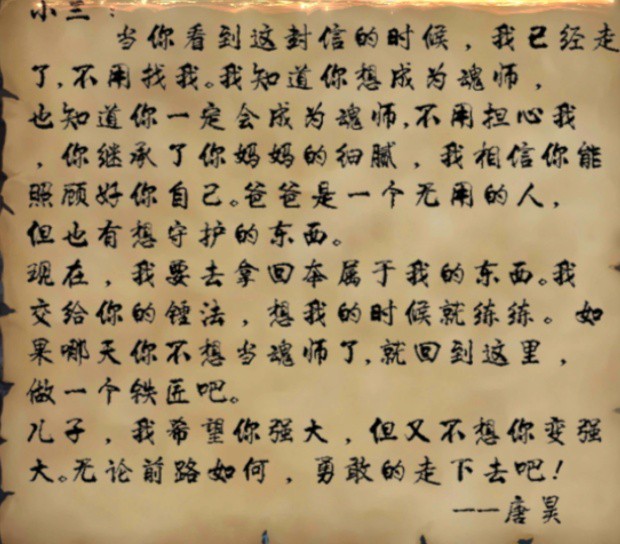 小三：
当你看到这封信的时候，我已经走
了,不用找我。我知道你想成为魂师，
也知道你一定会成为魂师,不用担心我
，你继承了你妈妈的细腻，我相信你能
照顾好你自己。爸爸是一个无用的人，
但也有想守护的东西。
现在，我要去拿回本属于我的东西。我
交给你的锤法，想我的时候就练练。如
果哪天你不想当魂师了,就回到这里，
做一个铁匠吧。
儿子，我希望你强大，但又不想你变强
大。无论前路如何，勇敢的走下去吧！
——唐昊